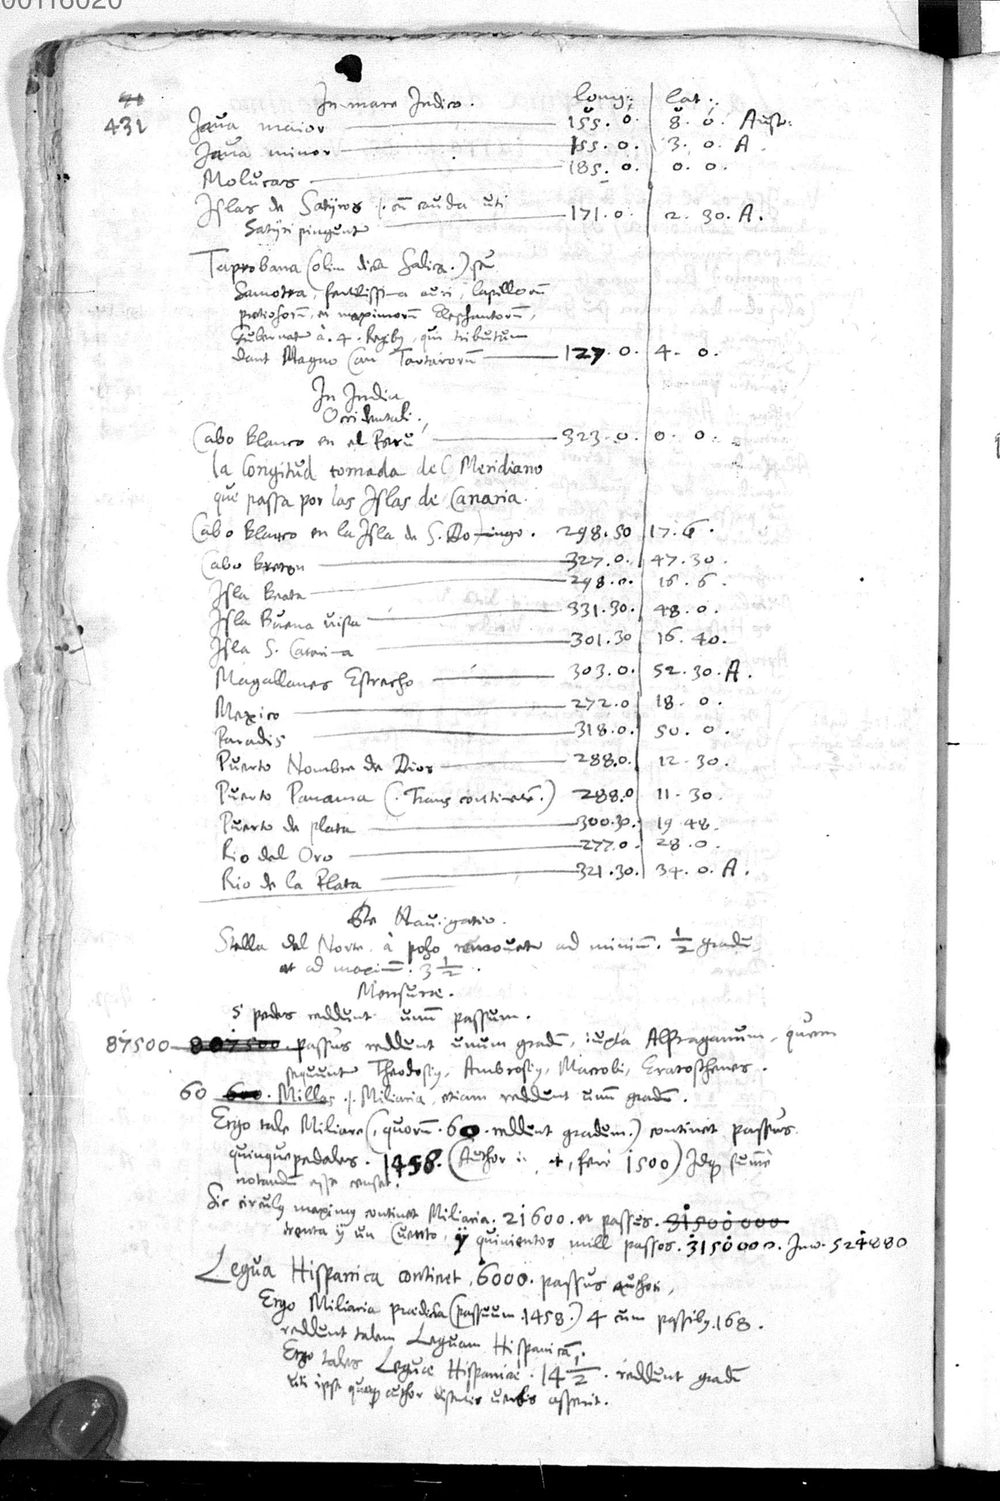 00116020
431
In mare Indico. long: lat:
Jaua maior 155. 0. 8. 0. Aust:
Jaua minor 155. 0. 3. 0. A.
Molucas 185. 0. 0. 0.
Islas de Satyros cauda uti
Satyri pingunt 171. 0. 2. 30. A.
Taprobana (olim dicta Salica.) seu
Samotra, fertilissima auri, lapillorū
pretiosorū, et maximorū Elephantorū,
Gubernatur à 4. Regiby, qui tributum
dant Magno Can Tartarorū 127. 0. 4. 0.
In India
Occidentali.
Cabo blanco en el Peru 323. 0. 0. 0.
la Longitud tomada del Meridiano
que passa por las Islas de Canaria.
Cabo blanco en la Isla de S. Domingo. 298. 50 17. 6.
Cabo breton 327. 0. 47. 30.
Isla Beata 298. 0. 16. 6.
Isla Buena uista 331. 30. 48. 0.
Isla S. Catarina 301. 30 16. 40.
Magallanes Estrecho 303. 0. 52. 30. A.
Mexico 272. 0 18. 0.
Paradis 318. 0. 50. 0.
Puerto Nombre de Dios 288. 0. 12. 30.
Puerto Panama (. Trans continentē.) 288. 0 11. 30.
Puerto de plata 300. 30. 19 48.
Rio del Oro 277. 0. 28. 0.
Rio de la Plata 321. 30. 34. 0. A.
De Nauigatio.
Stella del Norte à polo remouetur ad minimū. 1/2 gradu
et ad maximū: 3 1/2.
Mensurae.
5 pedes reddunt unū passum.
87500 807500. passus reddunt unum gradū, iuxta Alfraganum, quem
sequunt Theodosiy, Ambrosiy, Macrobi, Eratosthenes.
60 600. Milles Miliaria, etiam reddunt unū gradū.
Ergo tale Miliare (, quorū. 60. reddunt gradum.) continet passus
quinquepedales. 1458. (Author ferè 1500) Idq
notandū esse censet.
Sic circuly maximy continet Miliaria. 21600. et passus. 31500000
trenta y un Cuento, y quinientos mill passos. 3150000. 524880
Legua Hispanica continet, 6000. passus author,
Ergo Miliaria praedicta (passuum. 1458.) 4 cum passiby. 168.
reddunt talem Leguam Hispanicā.
Ergo tales Leguae Hispanicae. 14 1/2. reddunt gradū
uti ipse quoq author uerbis asserit.